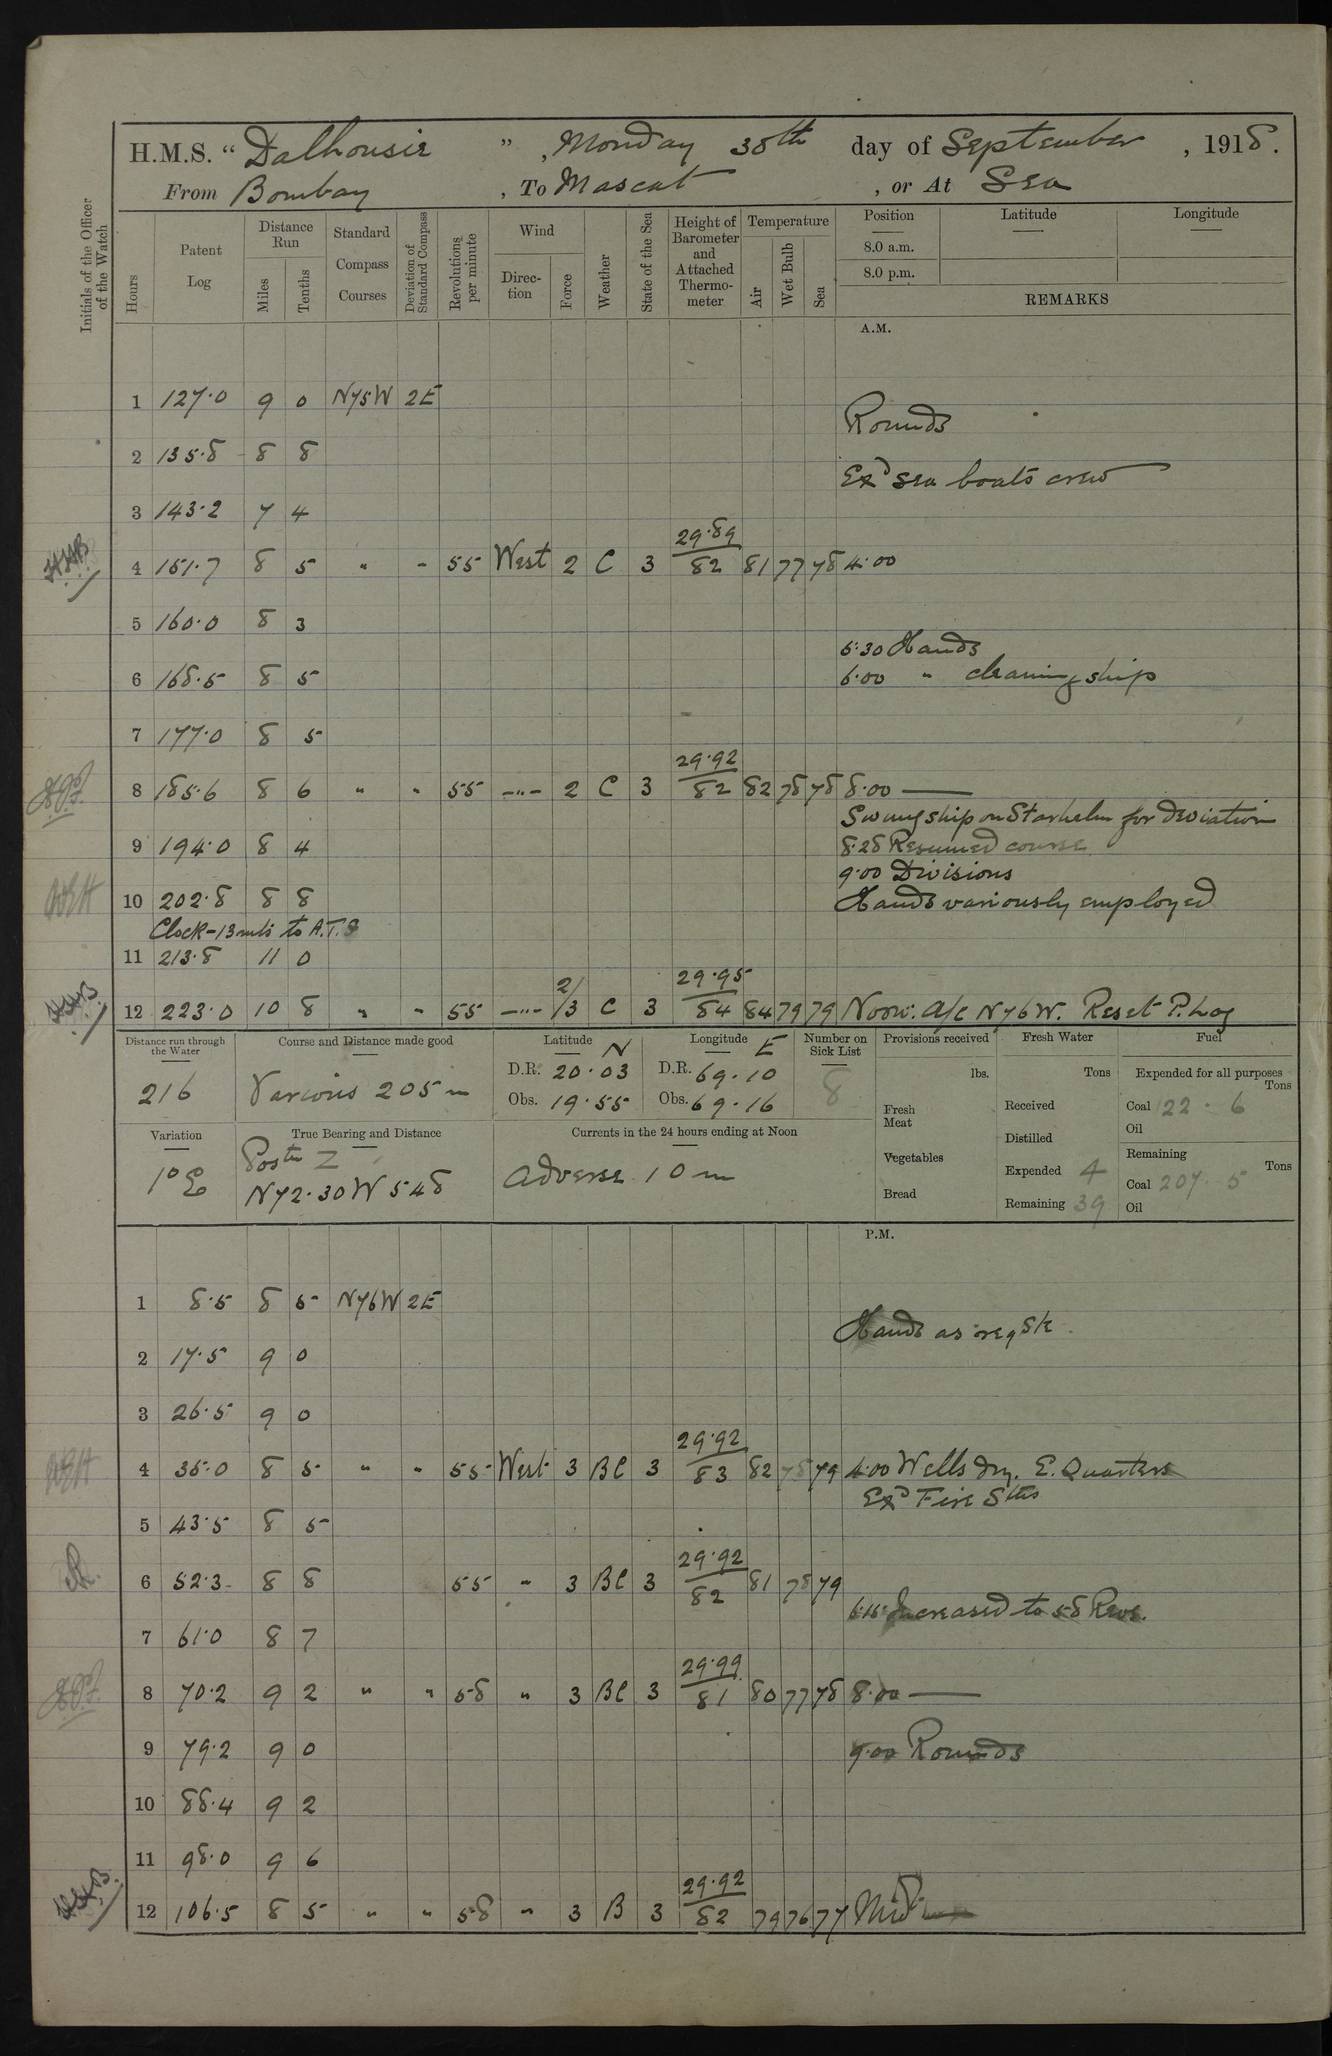 H.M.S. "Dalhousie", Monday 30th day of September, 1918.
From Bombay, To Mascat, or At Sea
Initials of the Officer of the Watch
Hours
Patent Log
Distance Run
Miles
Tenths
Standard Compass Courses
Deviation of Standard Compass
Revolutions per minute
Wind
Direction
Force
Weather
State of the Sea
Height of Barometer and Attached Thermometer
Temperature
Air
Wet Bulb
Sea
Position
8.0 a.m.
8.0 p.m.
Latitude
Longitude
REMARKS
A.M.
1 127.0 9 0 N75W 2E
Rounds
2 135.8 8 8
Exd sea boats crew
3 143.2 7 4
29.89
4 151.7 8 5 " " 55 West 2 C 3 82 81 77 78 4.00
5 160.0 8 3
5.30 Hands
6 168.5 8 5 6.00 " cleaning ship
7 177.0 8 5
29.92
8 185.6 8 6 " " 55 —"— 2 C 3 82 82 78 78 8.00 —
Swung ship on Starhelm for deviation
9 194.0 8 4 8.28 Resumed course
9.00 Divisions
10 202.8 8 8 Hands variously employed
Clock -13 mts to A.T.S
11 213.8 11 0
29.95
12 223.0 10 8 " " 55 —"— 2/3 C 3 84 84 79 79 Noon: A/c N76W. Reset P. Log
Distance run through the Water
216
Course and Distance made good
Various 205 m
Latitude N
D.R. 20.03
Obs. 19.55
Longitude E
D.R. 69.10
Obs. 69.16
Number on Sick List
8
Provisions received
lbs.
Fresh Meat
Vegetables
Bread
Fresh Water
Tons
Received
Distilled
Expended 4
Remaining 39
Fuel
Expended for all purposes
Tons
Coal 22.6
Oil
Remaining
Tons
Coal 207.5
Oil
Variation
1° E
True Bearing and Distance
Postn Z
N72.30W 548
Currents in the 24 hours ending at Noon
Adverse 10 m
P.M.
1 8.5 8 5 N76W 2E
Hands as reqste
2 17.5 9 0
3 26.5 9 0
29.92
4 35.0 8 5 " " 55 West 3 BC 3 83 82 78 79 4.00 Wells dry. E. Quarters
Exd Fire Stns
5 43.5 8 5
29.92
6 52.3 8 8 55 " 3 BC 3 82 81 78 79
6.15 Increased to 58 Revs.
7 61.0 8 7
29.99
8 70.2 9 2 " " 58 " 3 BC 3 81 80 77 78 8.00 —
9 79.2 9 0 9.00 Rounds
10 88.4 9 2
11 98.0 9 6
29.92
12 106.5 8 5 " " 58 " 3 B 3 82 79 76 77 Midt